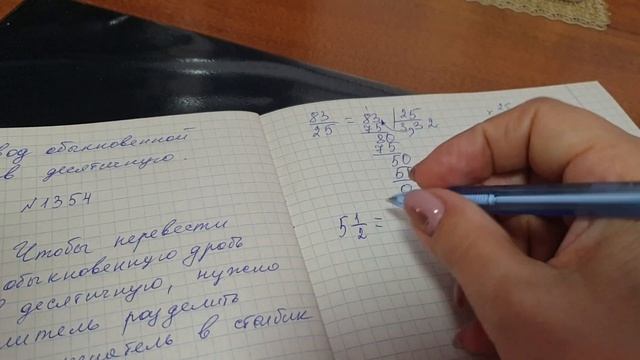 обыкновенной
в десятичную.
№1354
Чтобы перевести
обыкновенную дробь
десятичную, нужно
разделить
в столбик
83/25 = 83 | 25
75 3,32
80
75
50
0
5 1/2 =